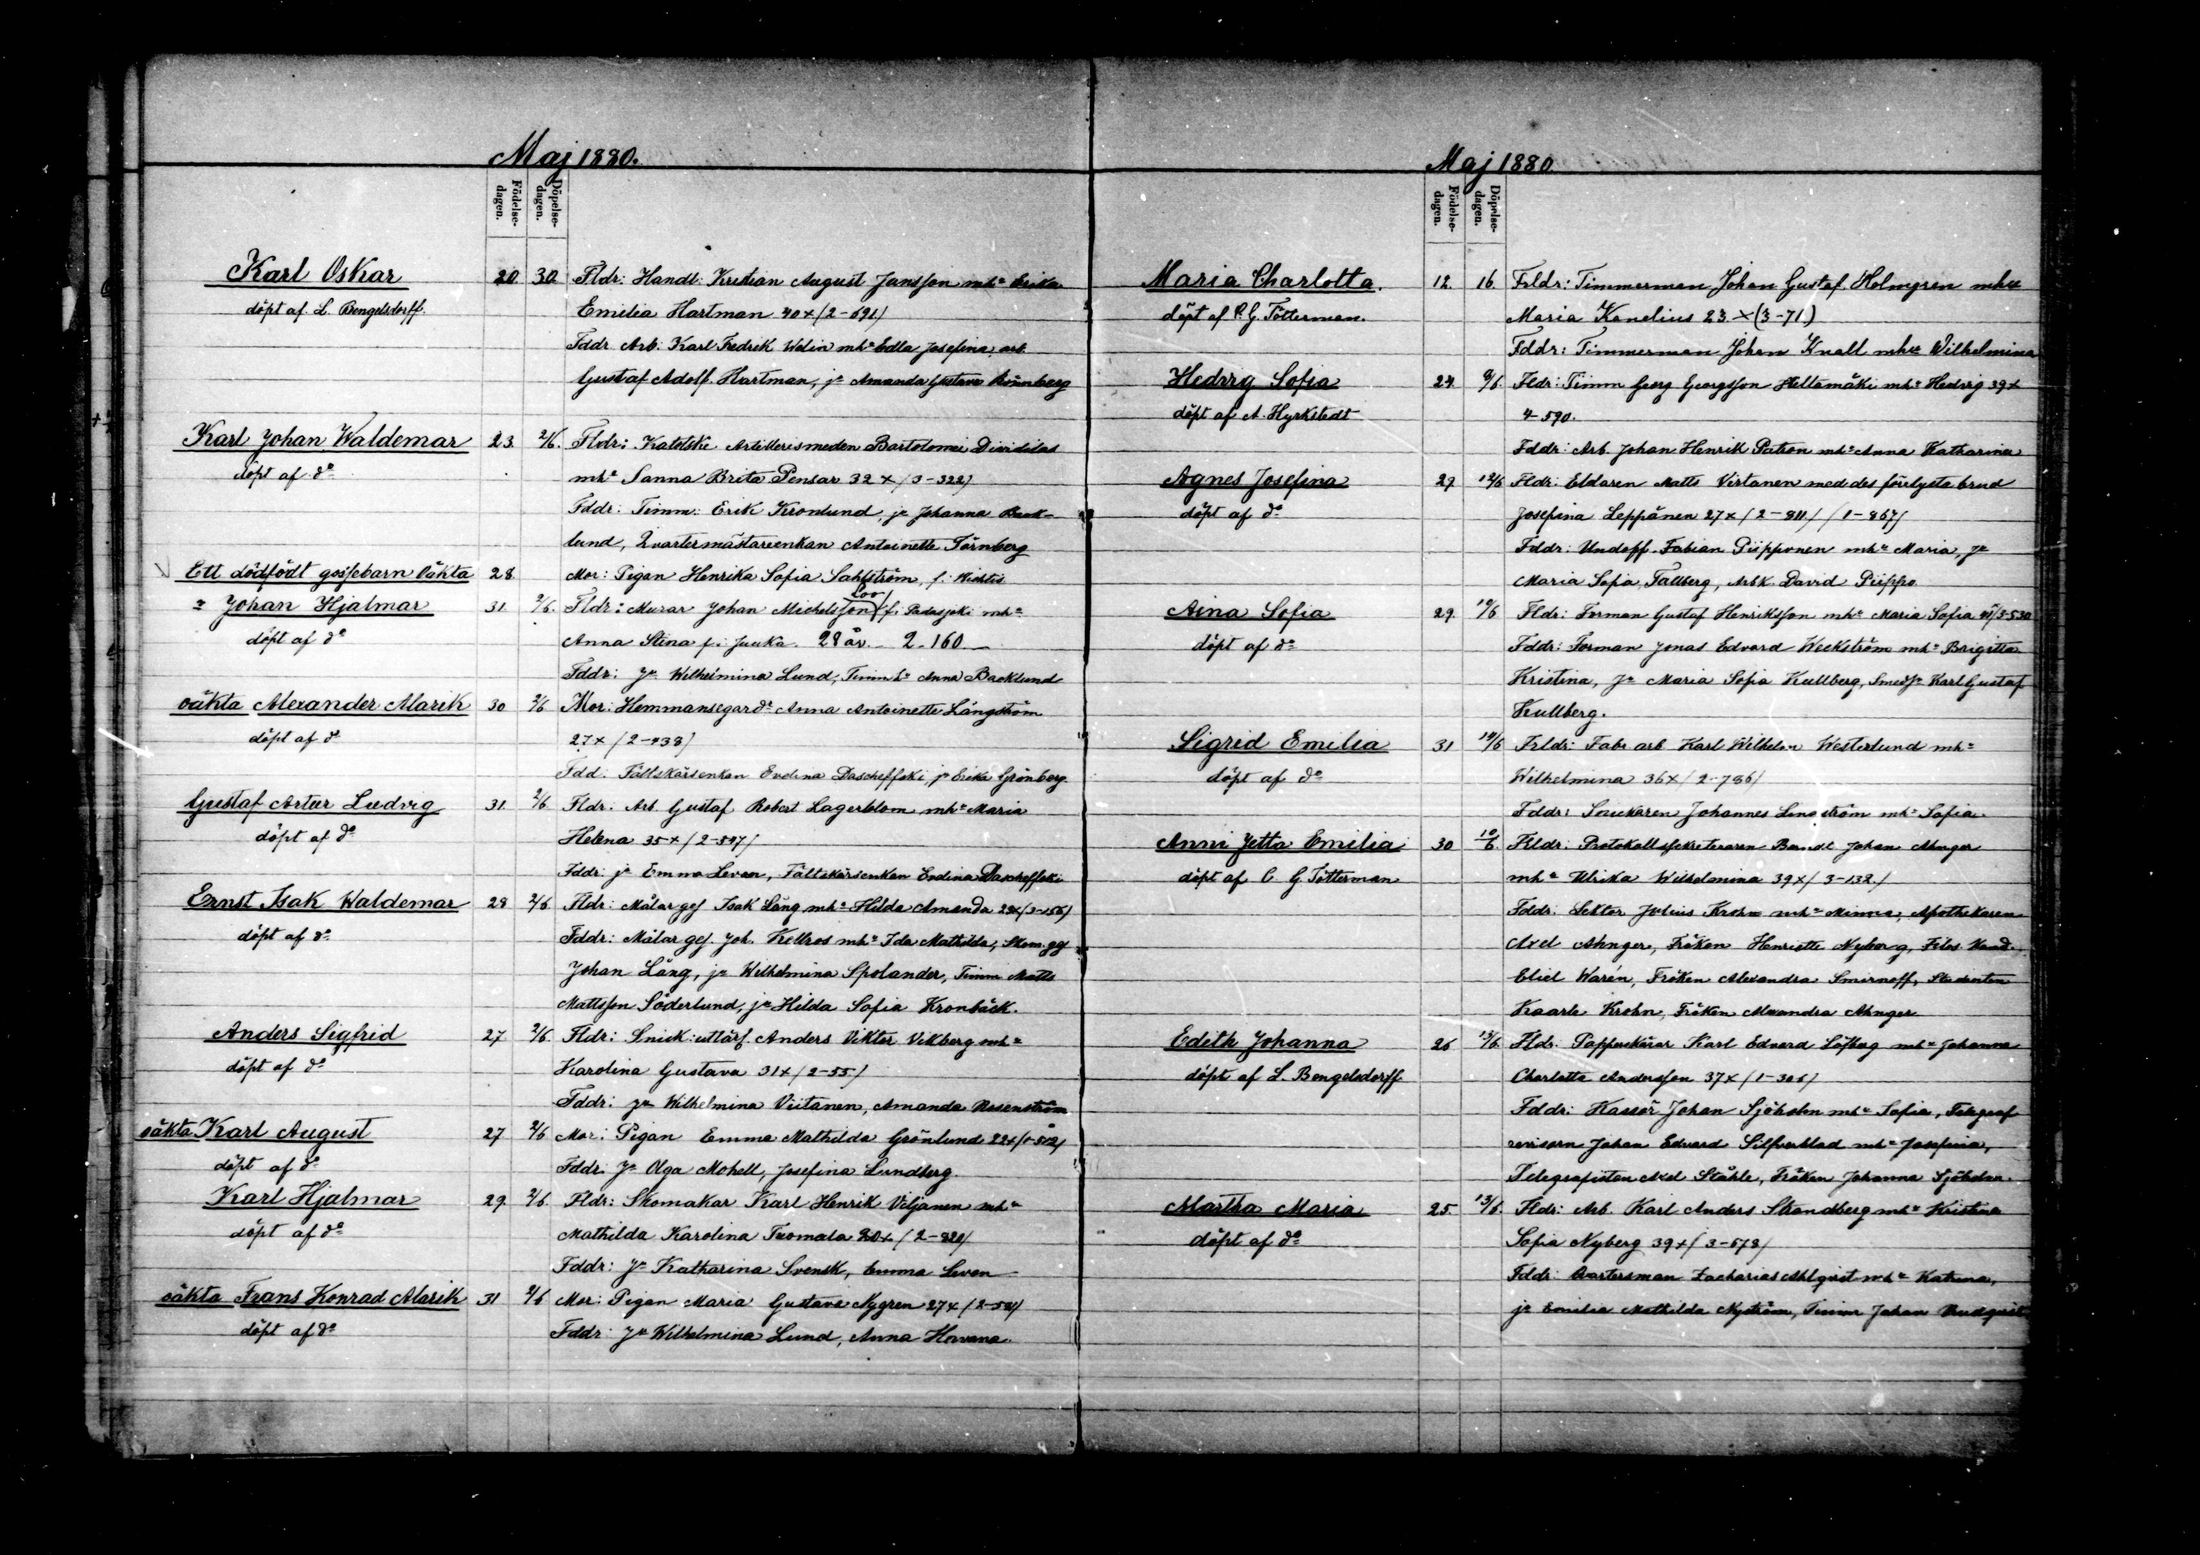 Maj 1880.
Födelse-dagen. Döpelse-dagen.
Karl Oskar 20 30 Fldr: Handl: Kristian August Jansson mhu Erika
döpt af L. Bengelsdorff. Emilia Hartman 40+ (2-691)
Fddr Arb: Karl Fredrik Welin mhu Edla Josefina, arb.
Gustaf Adolf Hartman, ju Amanda Gustava Rönnberg
Karl Johan Waldemar 23. 2/6. Fldr: Katolske Artillerismeden Bartolomei
döpt af do mhu Sanna Brita Pensar 32 + (3-322)
Fddr: Timm: Erik Kronlund, ju Johanna Back-
lund, Qvartermästareenkan Antoinette Törnberg
Ett dödfödt gossebarn oäkta 28 Mor: Pigan Henrika Sofia Sahlström, f. i Wichtis
Johan Hjalmar 31. 2/6. Fldr: Murar Johan Michelsson Loo f. i Padasjoki mhu
döpt af do Anna Stina f. i Juuka. 28 år. 2-160
Fddr: Ju Wilhelmina Lund, Timm. Anna Backlund
oäkta Alexander Alarik 30 2/6 Mor: Hemmansegare do Anna Antoinette Långström
döpt af do 27+ (2-438)
Fdd. Fältskärsenkan Evelina Dascheffski ju Erika Grönberg
Gustaf Artur Ludvig 31. 2/6 Fldr. Arb. Gustaf Robert Lagerblom mhu Maria
döpt af do Helena 35+ (2-597)
Fddr: ju Emma Leven, Fältskärsenkan Evelina Dascheffski
Ernst Isak Waldemar 28 2/6 Fldr: Målar gs. Isak Lång mhu Hilda Amanda 29+ (3-156)
döpt af do Fddr: Målar ges. Joh. Kellros mhu Ida Mathilda, Skom. gs.
Johan Lång, ju Wilhelmina Spolander, Timm Matts
Mattsson Söderlund, ju Hilda Sofia Kronbäck.
Anders Sigfrid 27 2/6. Fldr: Snick: utlärl. Anders Viktor Vikberg mhu
döpt af do Karolina Gustava 31+ (2-55)
Fddr: ju Wilhelmina Viitanen, Amanda Rosenström
oäkta Karl August 27 2/6 Mor: Pigan Emma Mathilda Grönlund 22+ (1-502)
döpt af do Fddr Ju Olga Mohell, Josefina Lundberg.
Karl Hjalmar 29. 2/6. Fldr: Skomakar Karl Henrik Viljanen mhu
döpt af do Mathilda Karolina Tuomala 20+ (2-820)
Fddr: Ju Katharina Svensk, Emma Leven
oäkta Frans Konrad Alarik 31 2/6 Mor: Pigan Maria Gustava Nygren 27+ (2-581)
döpt af do Fddr: Ju Wilhelmina Lund, Anna Hovana.
Maj 1880
Födelse-dagen. Döpelse-dagen.
Maria Charlotta. 12. 16. Frldr: Timmerman Johan Gustaf Holmgren mhu
döpt af C. G. Tötterman. Maria Kanelius 23 + (3-71)
Fddr: Timmerman Johan Knall mhu Wilhelmina
Hedvig Sofia 24. 9/6. Fldr: Timm Georg Georgsson Heltamäki mhu Hedvig 39+
döpt af A. Hyrkstedt 4-590.
Fddr: Arb. Johan Henrik Patron mhu Anna Katharina
Agnes Josefina 29 12/6 Fldr. Eldaren Matts Virtanen med des förelyste brud
döpt af do Josefina Leppänen 27+ (2-811) (1-867)
Fddr: Undoff. Fabian Piipponen mhu Maria, Ju
Maria Sofia Tallberg, Arbk. David Piippo
Aina Sofia 29. 10/6 Fldr: Forman Gustaf Henriksson mhu Maria Sofia 41/3-530
döpt af do Fddr: Forman Jonas Edvard Weckström mhu Brigitta
Kristina, Ju Maria Sofia Kullberg, Karl Gustaf
Kullberg.
Sigrid Emilia 31 14/6 Frldr: Fabr arb Karl Wilhelm Westerlund mhu
döpt af do Wilhelmina 36+ (2-786)
Fddr: Snickaren Johannes Lindström mhu Sofia
Anni Jetta Emilia 30 10/6 Fldr: Protokollsekreteraren Johan Ahnger
döpt af C. G. Tötterman mhu Ulrika Wilhelmina 39+ (3-132.)
Fddr. Lektor Julius Krohn mhu Minna, Apothekaren
Axel Ahnger, Fröken Henriette Nyberg, Filos. Kand.
Eliel Warén, Fröken Alexandra Smirnoff, Studenten
Kaarle Krohn, Fröken Alexandra Ahnger
Edith Johanna 26 13/6. Fldr. Papperskärar Karl Edvard Löfberg mhu Johanna
döpt af L. Bengelsdorff Charlotta Andersson 37+ (1-306)
Fddr: Kassör Johan Sjöholm mhu Sofia, Telegraf
revisorn Johan Edvard Silfverblad mhu Josefina,
Telegrafisten Axel Ståhle, Fröken Johanna Sjöholm.
Martha Maria 25. 13/6. Fldr: Arb. Karl Anders Strandberg mhu Kristina
döpt af do Sofia Nyberg 39+ (3-578)
Fddr Qvartersman Zacharias Ahlqvist mhu Katrina,
ju Emilia Mathilda Nyström, Timm Johan Rudqvist